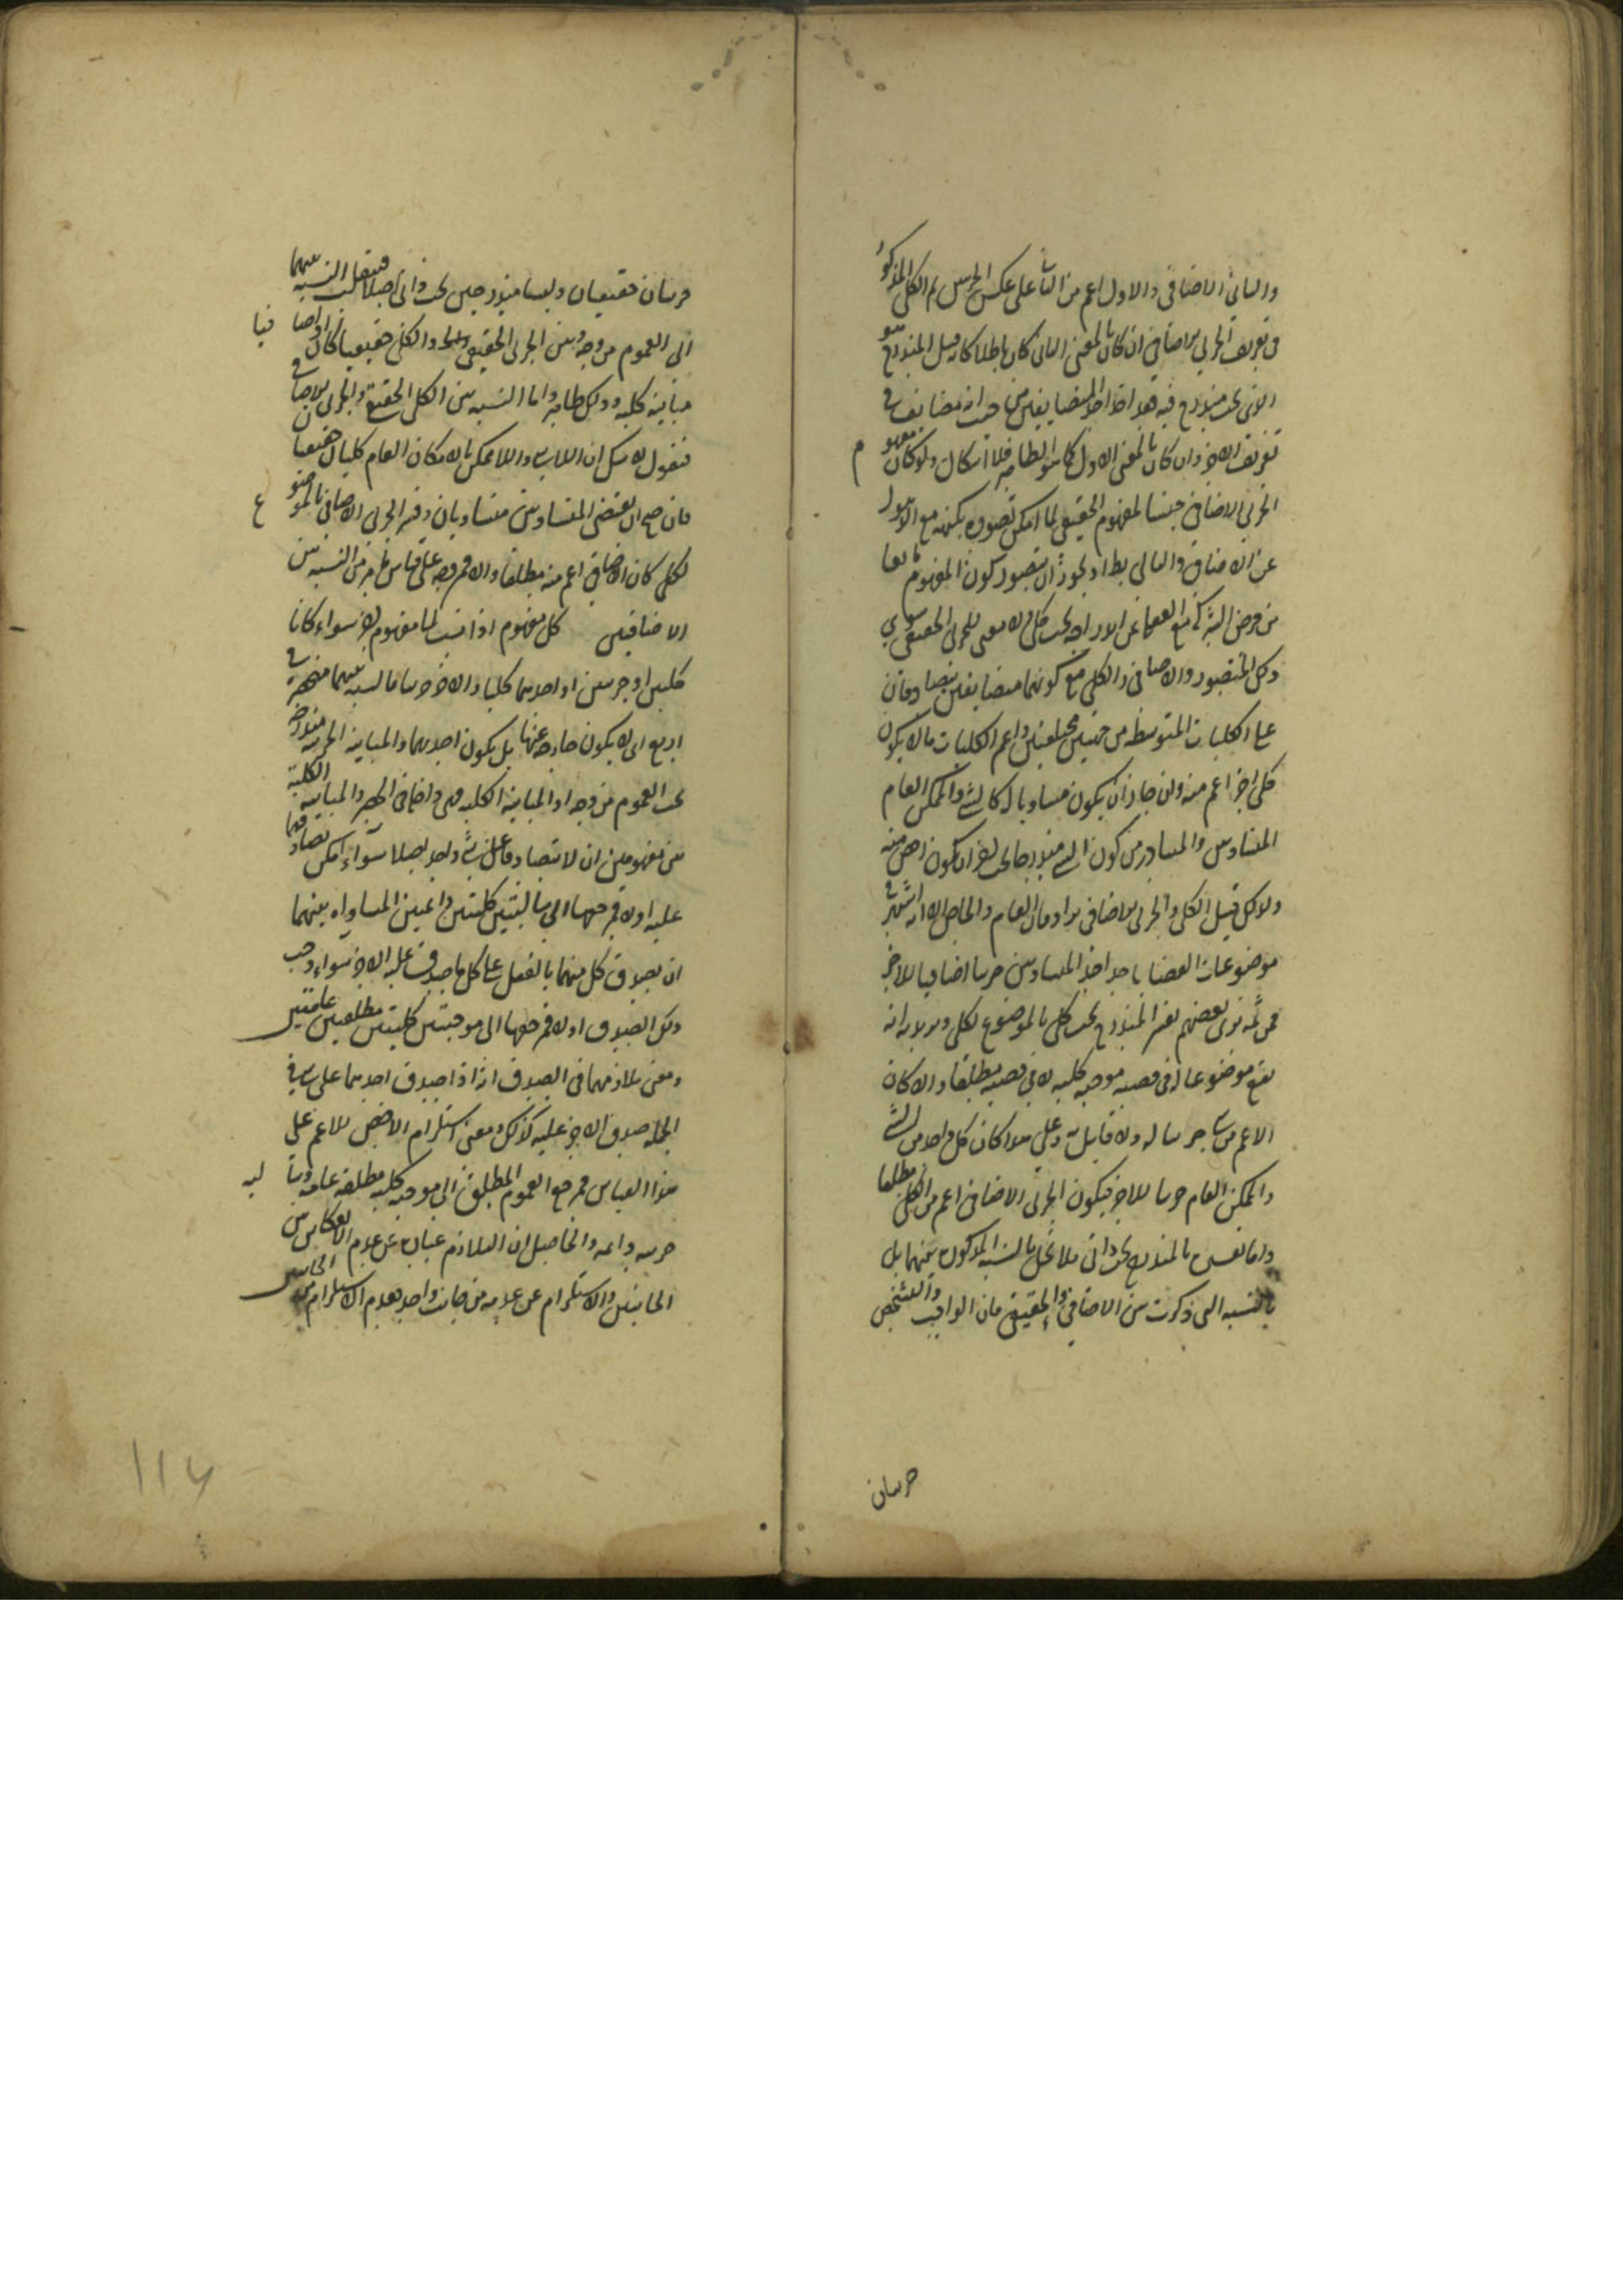 والثاني الاضافي والاول اعم من الثاني على عكس الجزئيين ثم الكلي المذكور
في تعريف الجزئي الاضافي ان كان بالمعنى الثاني كان باطلا كانه قيل المندرج هو
الذي تحت مندرج فيه هو اخذ احد المتضايفين من حيث انه مضايف في
تعريف الاخر وان كان بالمعنى الاول كما هو الظاهر فلا اشكال ولو كان مفهوم
الجزئي الاضافي جنسا لمفهوم الحقيقي لما امكن تصوره بكنهه مع الذهول
عن الاضافي والتالي بط اذ يجوز ان يتصور كون المفهوم مانعا
من فرض الشركة مع الغفلة عن اندراجه تحت كلي ولا معنى للجزئي الحقيقي سوى
ذلك المتصور والاضافي والكلي مع كونهما متضايفين يتصادقان
على الكليات المتوسطة من جهتين مختلفتين واعم الكليات ما لا يكون
كلي اخر اعم منه وان جاز ان يكون مساويا له كالشي والممكن العام
المتساويين والمتبادر من كون الشي مندرجا تحت اخر ان يكون اخص منه
ولذلك قيل الكلي والجزئي الاضافي يرادفان العام والخاص الا انه اشتهر في
موضوعات القضايا اخذ احد المتساويين جزئيا اضافيا للاخر
فمن ثمة ترى بعضهم يفسر المندرج تحت كلي بالموضوع لكلي ويريد به انه
يقع موضوعا له في قضية موجبة كلية لا في قضية مطلقا والا كان
الاعم من شي جزئيا له ولا قايل به وعلى هذا كان كل واحد من الشي
والممكن العام جزئيا للاخر فيكون الجزئي الاضافي اعم من الكلي مطلقا
واما تفسيره بالمندرج تحت ذاتي فلا تخل بالنسبة المذكورة بينهما بل
بالنسبة التي ذكرت بين الاضافي والحقيقي فان الواجب والتشخص
جزئيان
جزئيان حقيقيان وليسا مندرجين تحت ذاتي اصلا فينقلب النسبة بينهما
الى العموم من وجه وبين الجزئي الحقيقي والكلي حقيقيا كان او اضافيا
مباينة كلية وذلك ظاهر واما النسبة بين الكلي الحقيقي والجزئي الاضافي
فنقول لا شك ان اللاشي واللاممكن بالامكان العام كليان حقيقيان
فان صح ان نقيضي المتساويين متساويان وفسر الجزئي الاضافي بالموضوع
لكلي كان الاضافي اعم منه مطلقا والا فمن وجه على قياس ما مر من النسبة بين
الاضافيين كل مفهوم اذا نسب الى مفهوم اخر سواء كانا
كليين او جزئيين او احدهما كليا والاخر جزئيا فالنسبة بينهما منحصرة في
اربع اي لا يكون خارجة عنها بل يكون احديهما والمباينة الجزئية مندرجة
تحت العموم من وجه او المباينة الكلية فهي واضافي الحصر والمباينة الكلية
بين مفهومين ان لا يتصادقا على شي واحد اصلا سواء امكن تصادقهما
عليه او لا فمرجعها الى سالبتين كليتين دائمتين المساواة بينهما
ان يصدق كل منهما بالفعل على كل ما صدق عليه الاخر سواء وجب
ذلك الصدق او لا فمرجعها الى موجبتين كليتين مطلقتين عامتين
ومعنى تلازمهما في الصدق انه اذا صدق احدهما على شي في
الجملة صدق الاخر عليه كذلك ومعنى استلزام الاخص للاعم على
هذا القياس فمرجع العموم المطلق الى موجبة كلية مطلقة عامة وسالبة
جزئية دائمة والحاصل ان التلازم عبارة عن عدم الانفكاك من
الجانبين والاستلزام عن عدمه من جانب واحد فعدم الاستلزام من الجانبين